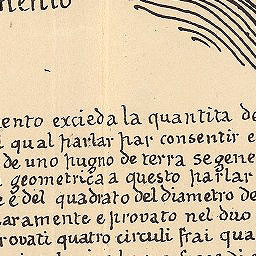 mento
mento excieda la quantita de
qual parlar par consentir e
de uno pugno de terra se gene
geometrica a questo parlar
e é del quadrato del diametro de
aramente e provato nel duo
rovati quatro circuli frai qua